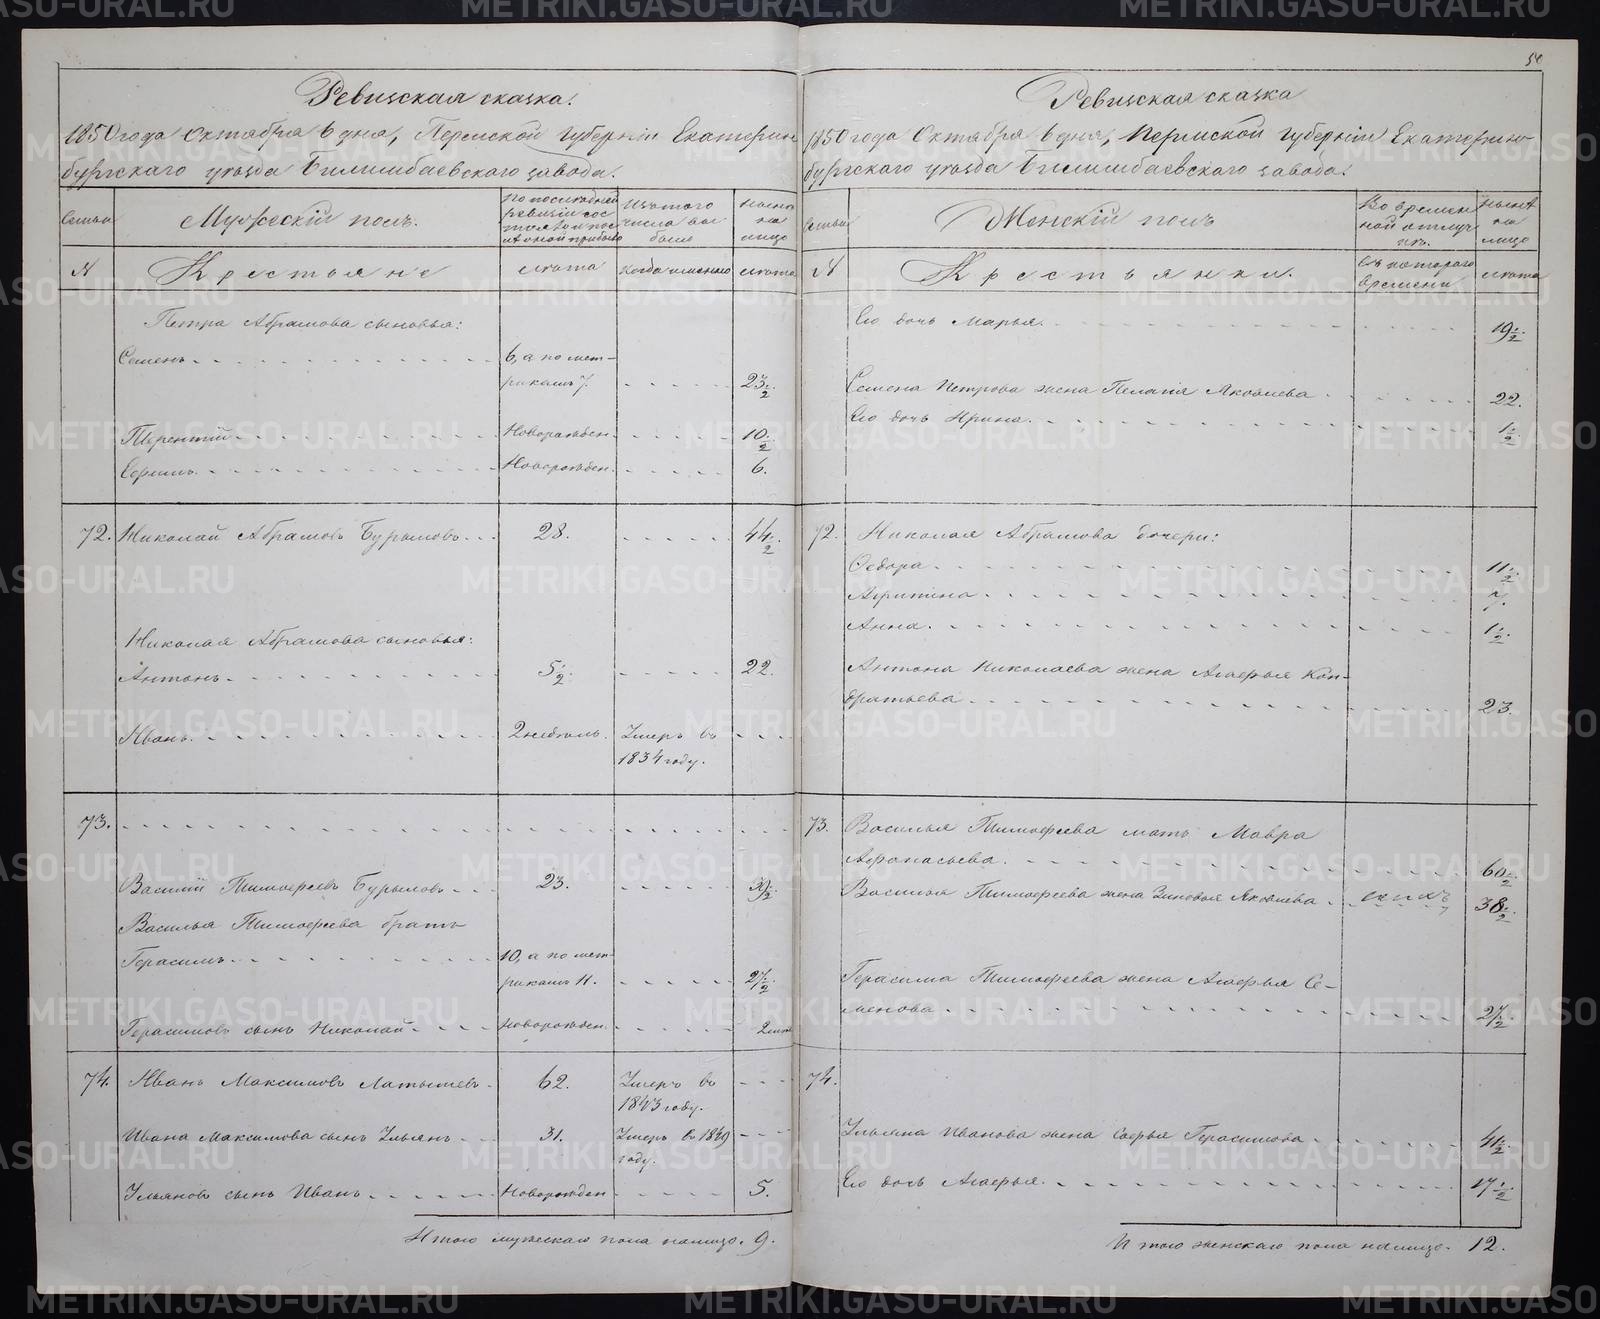 50
Ревизская сказка.
1850 года Октября 6 дня, Пермской губерніи Екатерин
бургскаго уѣзда Билимбаевскаго завода.
Семьи
Мужескій полъ.
По последней ревизіи сос
тояло и пос
лѣ оной прибыло
Изъ того числа вы
было
Нынѣ на лицо
№
Крестьяне
лѣта
когда именно
лѣта
Петра Абрамова сыновья:
Семенъ
6, а по мет-
рикамъ 7.
23 1/2
Терентій
Новорожден.
10 1/2
Ефимъ
Новорожден.
6.
72.
Николай Абрамовъ Бурыловъ
28.
44 1/2
Николая Абрамова сыновья:
Антонъ
5 1/2
22.
Иванъ
2 недѣль.
Умеръ въ
1834 году.
73.
Василій Тимофеевъ Бурыловъ
23.
39 1/2
Василья Тимофеева братъ
Герасимъ
10, а по мет-
рикамъ 11.
27 1/2
Герасимовъ сынъ Николай
Новорожден.
74.
Иванъ Максимовъ Латышевъ
62.
Умеръ въ
1843 году.
Ивана Максимова сынъ Ульянъ
31.
Умеръ въ 1849
году.
Ульяновъ сынъ Иванъ
Новорожден
5.
Итого мужескаго пола налицо. 9.
Ревизская сказка
1850 года Октября 6 дня, Пермской губерніи Екатерин-
бургскаго уѣзда Билимбаевскаго завода.
Семьи
Женскій полъ
Во времен
ной отлуч
кѣ.
Нынѣ на лицо
№
Крестьянки.
Съ котораго
времени
лѣта
Его дочь Марья.
19 1/2
Семена Петрова жена Пелагія Яковлева
22.
Его дочь Ирина.
1 1/2
72.
Николая Абрамова дочери:
Федора
11 1/2
Агрипина
7.
Анна
1 1/2
Антона Николаева жена Агафья Кон-
дратьева
23.
73.
Василья Тимофеева мать Мавра
Афанасьева.
60 1/2
Василья Тимофеева жена Зиновья Яковлева
38 1/2
Герасима Тимофеева жена Агафья Се-
менова
27 1/2
74.
Ульяна Иванова жена Софья Герасимова
41 1/2
Его дочь Агафья
17 1/2
Итого женскаго пола налицо. 12.
METRIKI.GASO-URAL.RU